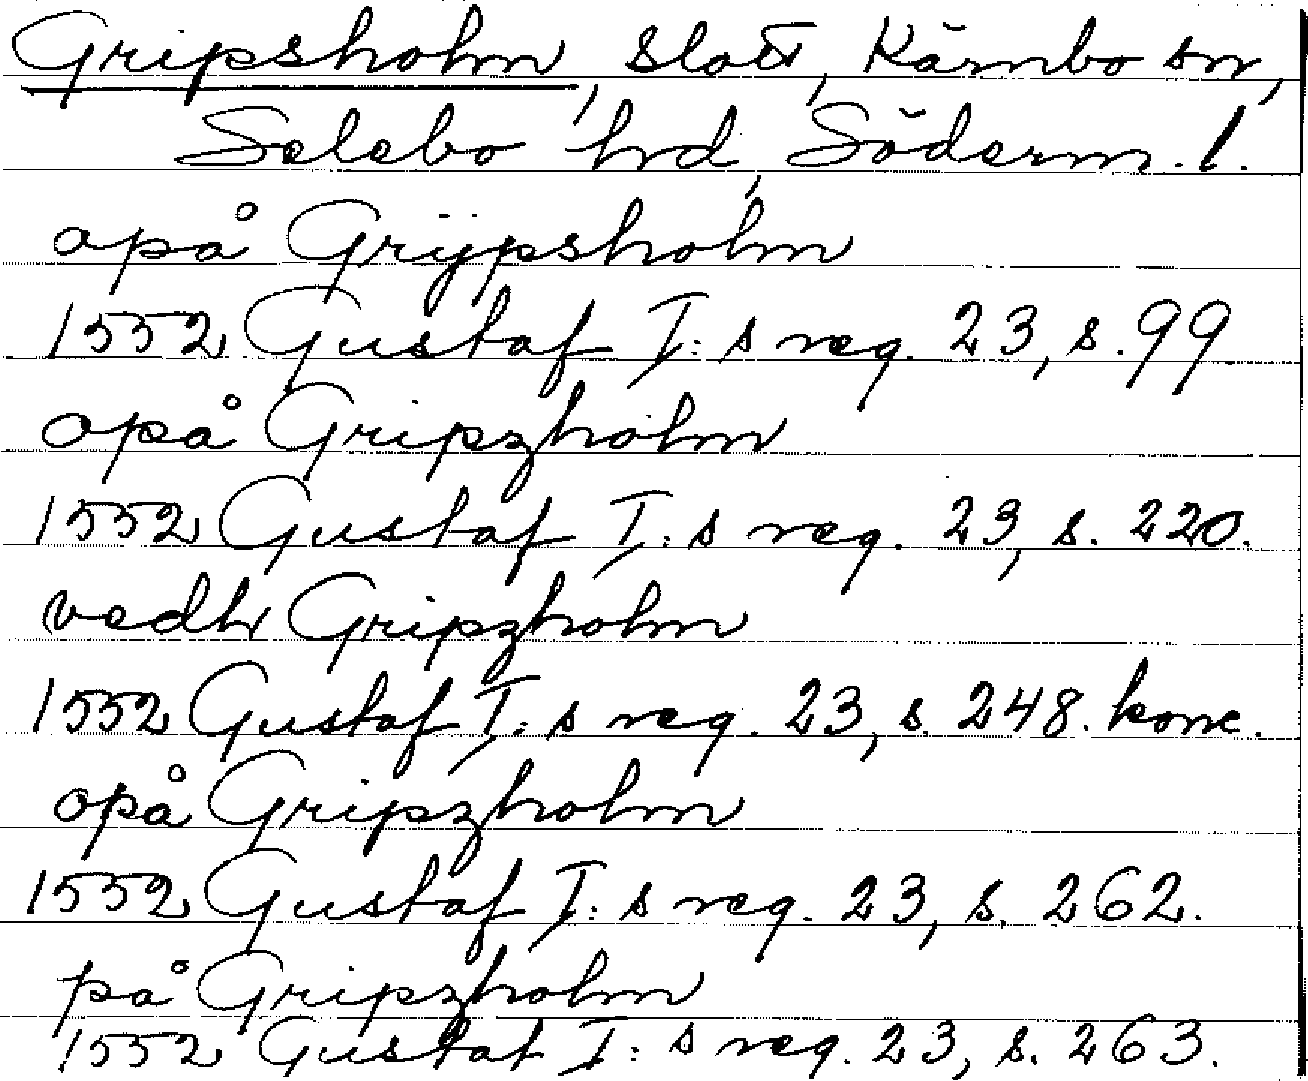 Gripsholm, slott, Kärnbo sn,
Selebo hd, Söderm. l.
opå Grÿpsholm
1552 Gustaf I:s reg. 23, s. 99
opå Gripzholm
1552 Gustaf I:s reg. 23, s. 220.
vedh Gripzholm
1552 Gustaf I:s reg. 23, s. 248. konc.
opå Gripzholm
1552 Gustaf I:s reg. 23, s. 262.
på Gripzholm
1552 Gustaf I:s reg. 23, s. 263.